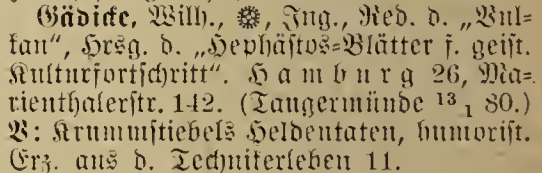 Gädicke, Wilh., ❁, Ing., Red. d. „Vul-
kan“, Hrsg. d. „Hephästos-Blätter f. geist.
Kulturfortschritt“. Hamburg 26, Ma-
rienthalerstr. 142. (Tangermünde 13/1 80.)
V: Krummstiebels Heldentaten, humorist.
Erz. aus d. Technikerleben 11.